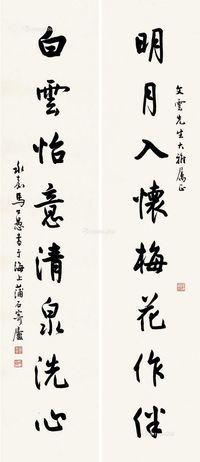 文雲先生大雅属正
明月入懷梅花作伴
白雲怡意清泉洗心
永嘉馬公愚書于海上蒲石寄廬